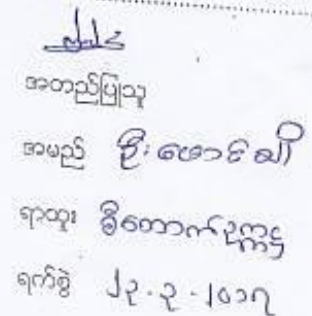 အတည်ပြုသူ
အမည် ဦးမောင်ဆီ
ရာထူး စီတောက်ဥက္ကဋ္ဌ
ရက်စွဲ ၂၃.၃.၂၀၁၇